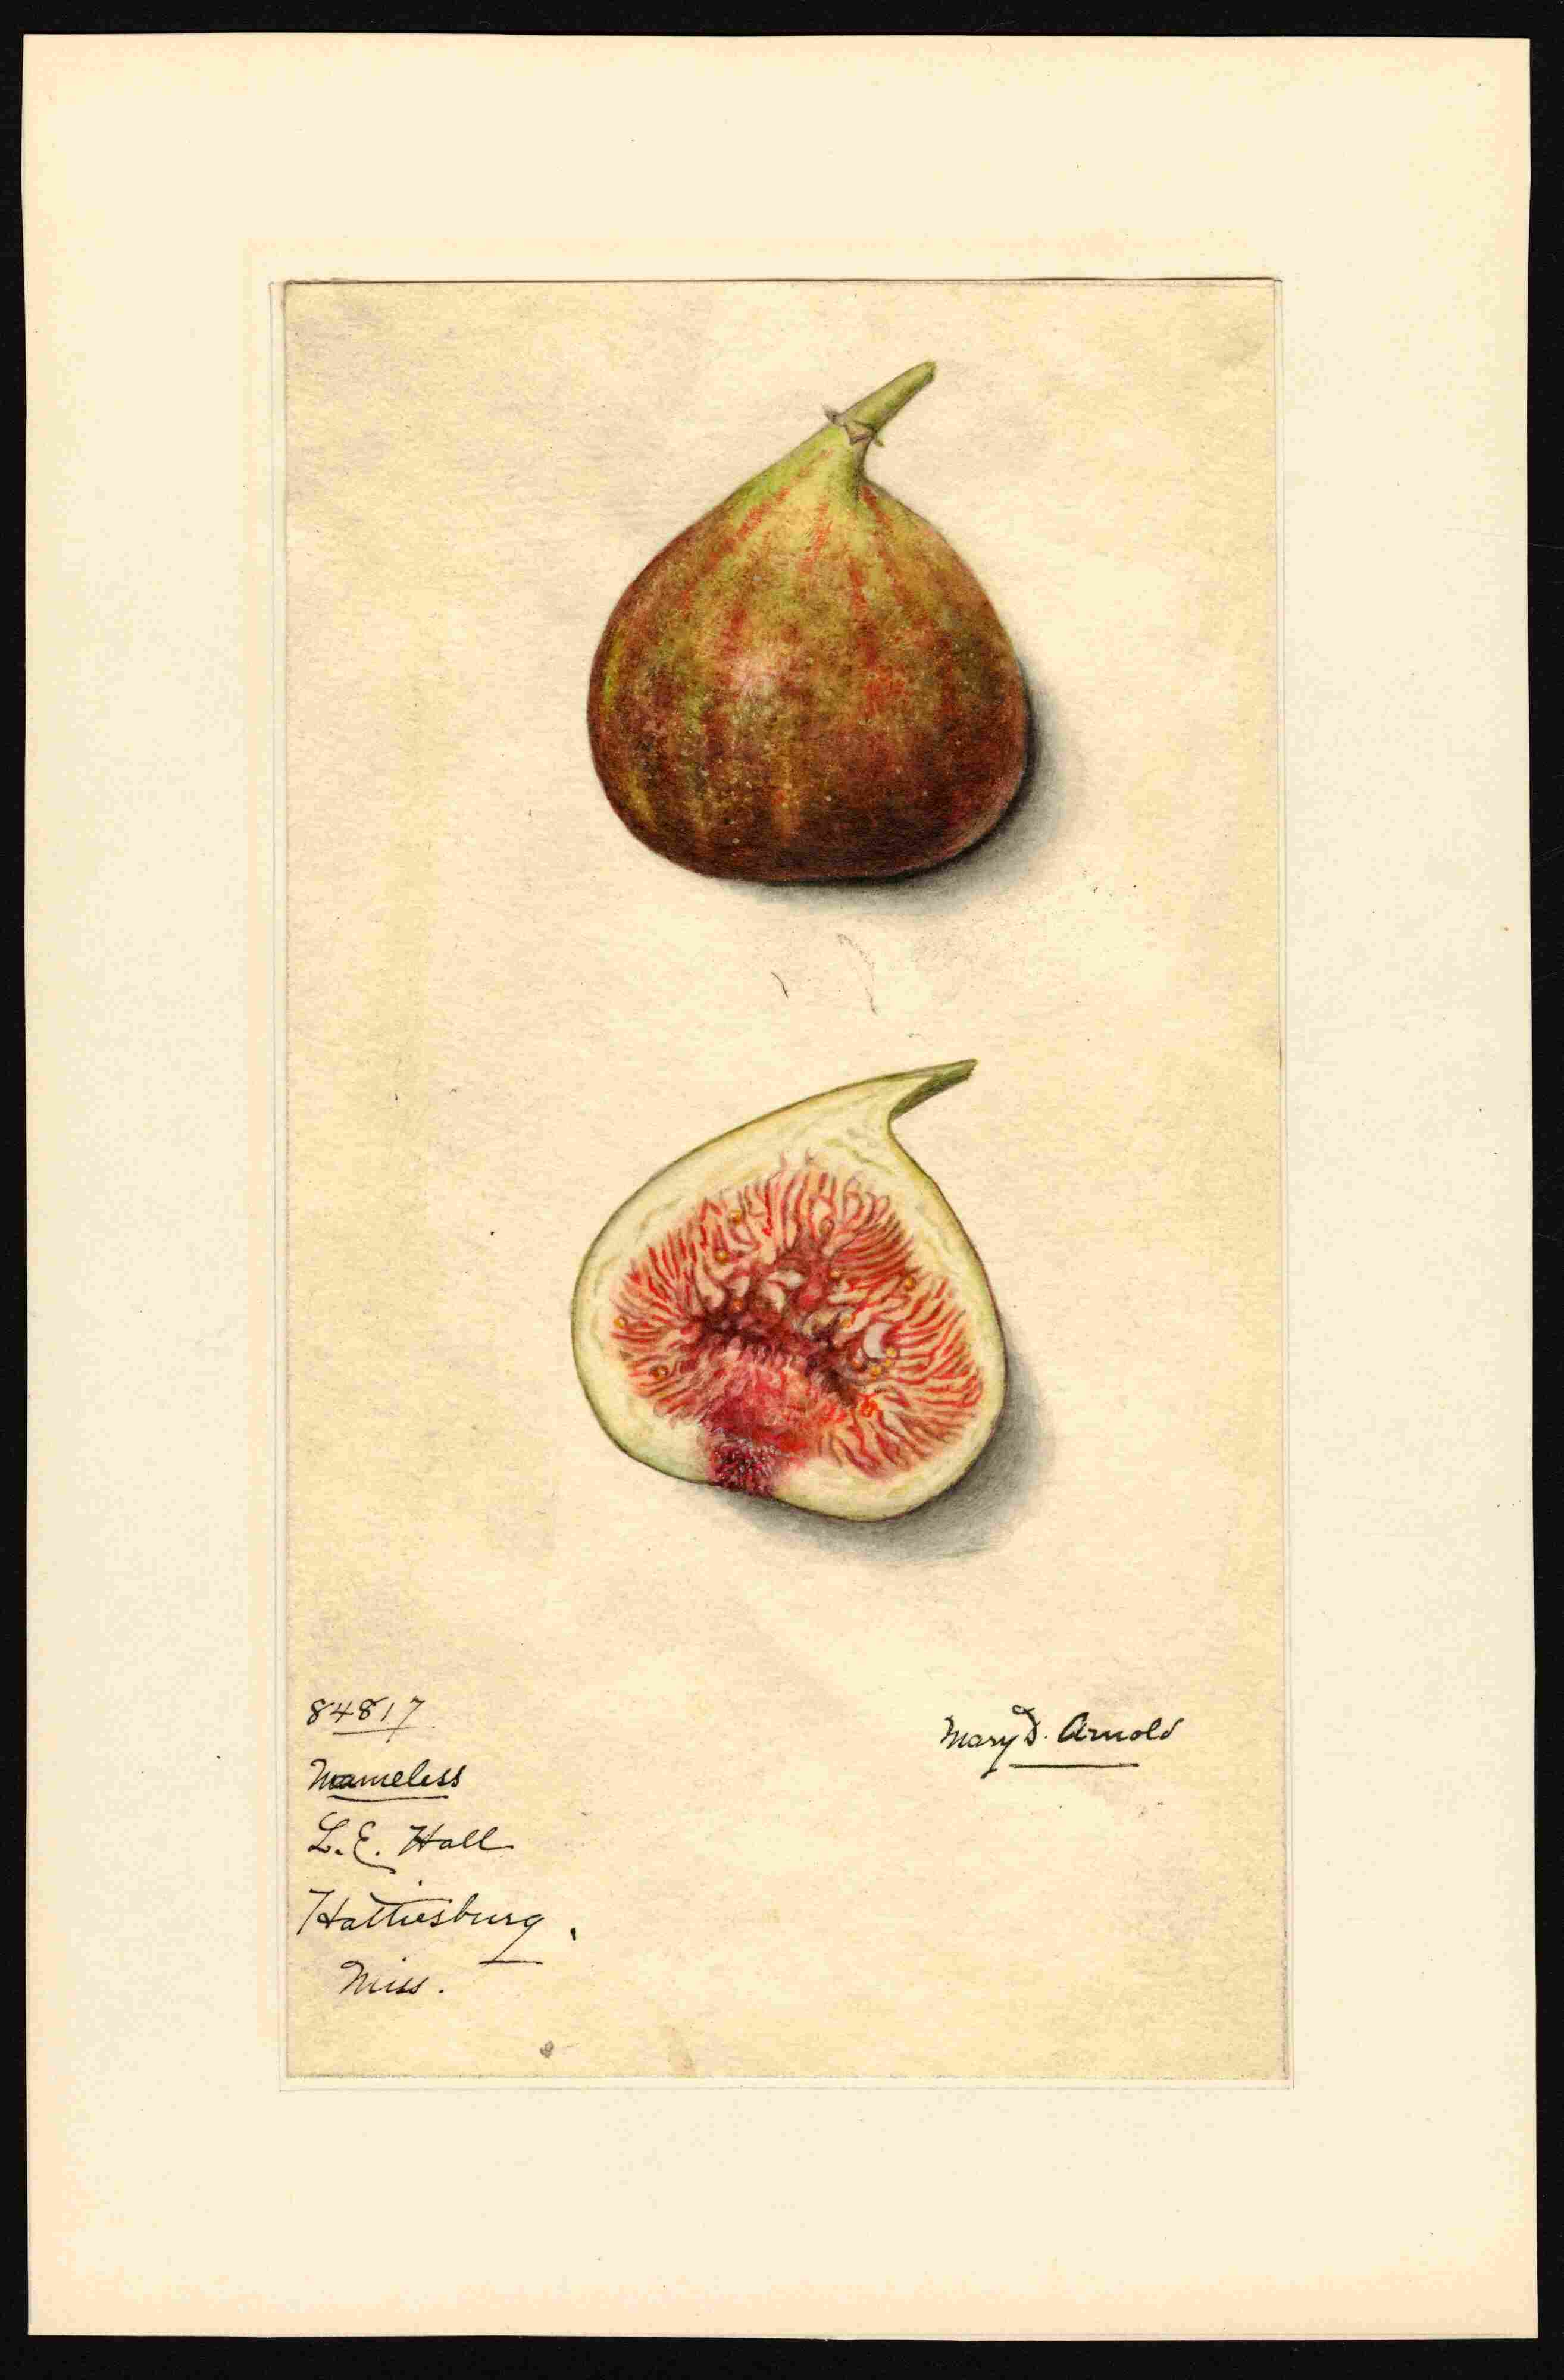 84817
Nameless
L. E. Hall
Hattiesburg,
Miss.
Mary D. Arnold